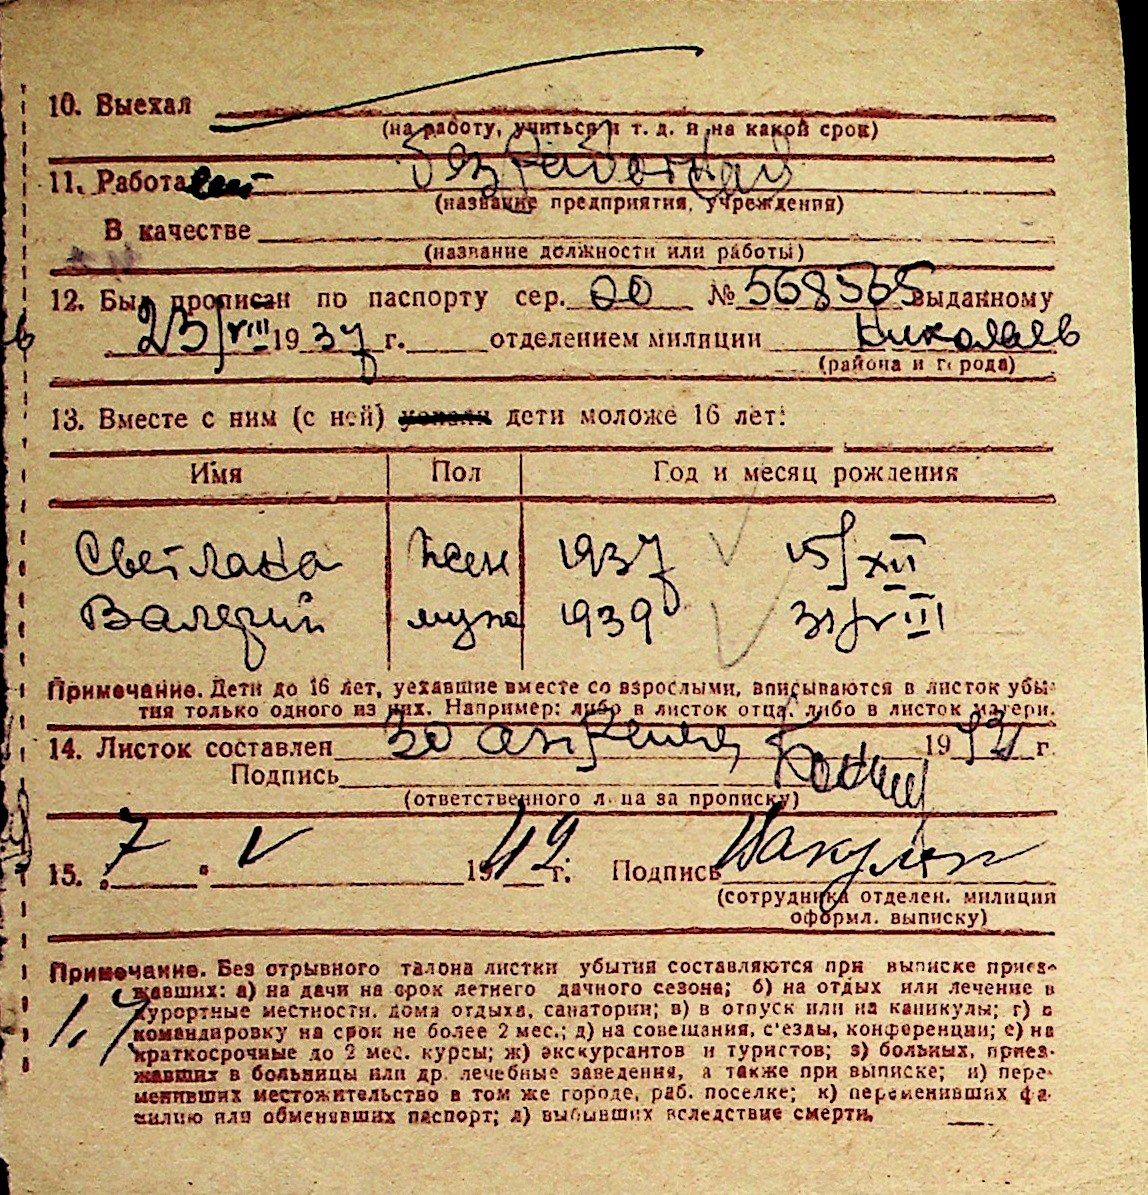 10. Выехал
(на работу, учиться и т. д. и на какой срок)
11. Работает
(название предприятия, учреждения)
В качестве
(название должности или работы)
12. Был прописан по паспорту сер. 00 № 568565 выданному
23/VIII 1937 г. отделением милиции Николаев
(района и города)
13. Вместе с ним (с ней) дети моложе 16 лет:
Имя Пол Год и месяц рождения
Светлана жен 1937 15/XII
Валерий муж 1939 31/VIII
Примечание. Дети до 16 лет, уехавшие вместе со взрослыми, вписываются в листок убы-
тия только одного из них. Например: либо в листок отца, либо в листок матери.
14. Листок составлен 30 апреля 19 г.
Подпись
(ответственного лица за прописку)
15. 7 V 1942 г. Подпись
(сотрудника отделен. милиции
оформл. выписку)
Примечание. Без отрывного талона листки убытия составляются при выписке приез-
жавших: а) на дачи на срок летнего дачного сезона; б) на отдых или лечение в
курортные местности, дома отдыха, санатории; в) в отпуск или на каникулы; г) в
командировку на срок не более 2 мес.; д) на совещания, с'езды, конференции; е) на
краткосрочные до 2 мес. курсы; ж) экскурсантов и туристов; з) больных, приез-
жавших в больницы или др. лечебные заведения, а также при выписке; и) пере-
менивших местожительство в том же городе, раб. поселке; к) переменивших фа-
милию или обменявших паспорт; л) выбывших вследствие смерти.